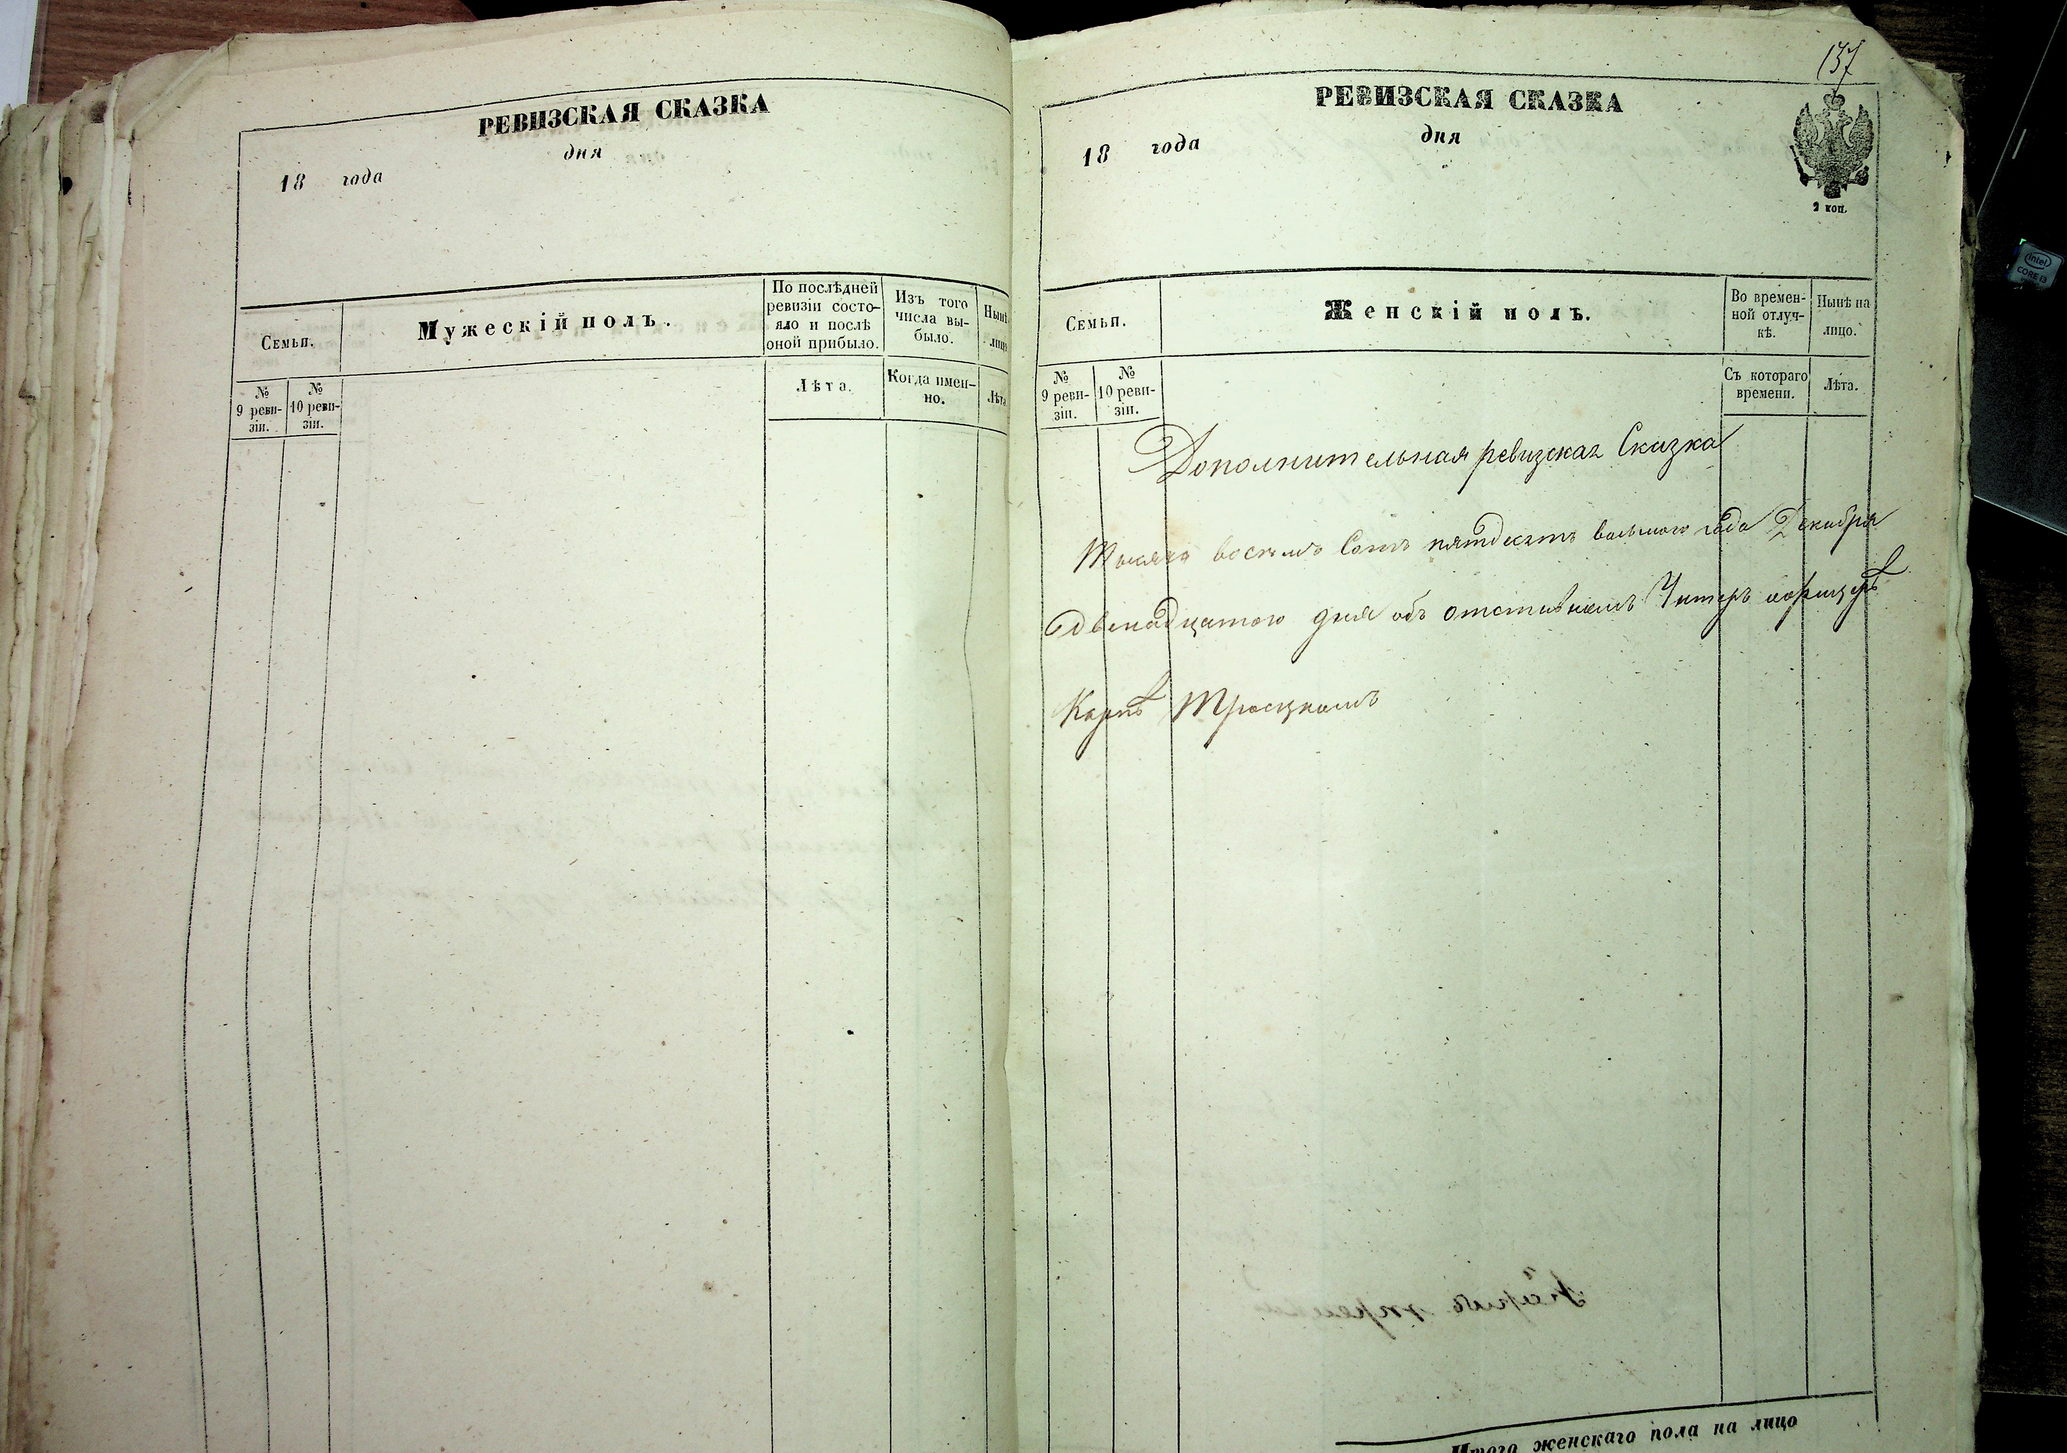 РЕВИЗСКАЯ СКАЗКА
дня
18 года
Семьи.
Мужескій полъ.
По послѣдней
ревизіи состо-
яло и послѣ
оной прибыло.
Изъ того
числа вы-
было.
Нынѣ
лицо
№
9 реви-
зіи.
№
10 реви-
зіи.
Лѣта.
Когда имен-
но.
Лѣта.
137
РЕВИЗСКАЯ СКАЗКА
дня
18 года
2 коп.
Семьи.
Женскій полъ.
Во времен-
ной отлуч-
кѣ.
Нынѣ на
лицо.
№
9 реви-
зіи.
№
10 реви-
зіи.
Съ котораго
времени.
Лѣта.
Дополнительная ревизская Сказка
Тысяча восемь Сотъ пятдесятъ восьмого года Декабря
двенадцатого дня объ отставномъ Унтеръ офицерѣ
Карпѣ Троцкомъ
Итого женскаго пола на лицо
intel
CORE i3